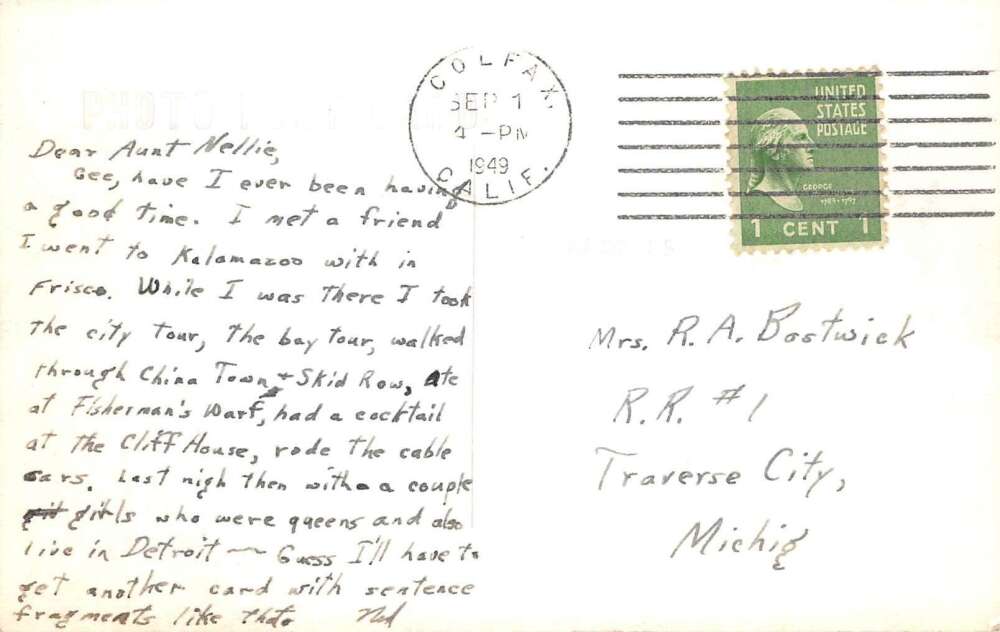 COLFAX,
SEP 1
4 - PM
1949
CALIF.
UNITED
STATES
POSTAGE
GEORGE
1789-1797
1 CENT 1
Dear Aunt Nellie,
Gee, have I ever been having
a good time. I met a friend
I went to Kalamazoo with in
Frisco. While I was there I took
the city tour, the bay tour, walked
through China Town + Skid Row, ate
at Fisherman's Warf, had a cocktail
at the Cliff House, rode the cable
cars. Last nigh then with a a couple
girls who were queens and also
live in Detroit — Guess I'll have to
get another card with sentence
fragments like that. Ned
Mrs. R. A. Bostwick
R.R. #1
Traverse City,
Michig